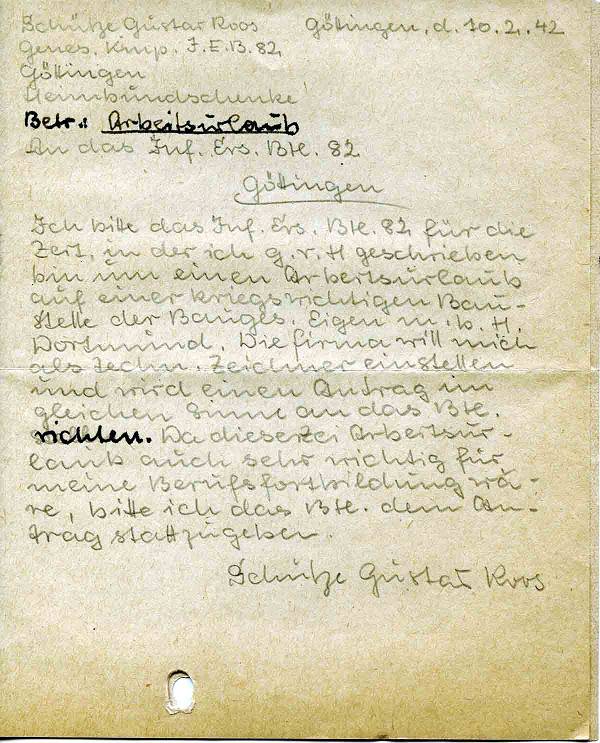 Schütze Gustav Koos Göttingen, d. 10.2.42
Genes. Kmp. I.E.B. 82
Göttingen
Betr.: Arbeitsurlaub
An das Inf. Ers. Btl. 82
Göttingen
Ich bitte das Inf. Ers. Btl. 82 für die
Zeit, in der ich g. v. H geschrieben
bin um einen Arbeitsurlaub
auf einer kriegswichtigen Bau-
stelle der Bauges. Eigen m. b. H.
Dortmund. Die Firma will mich
als techn. Zeichner einstellen
und wird einen Antrag im
gleichen Sinne an das Btl.
richten. Da dieser Arbeitsur-
laub auch sehr wichtig für
meine Berufsfortbildung wä-
re, bitte ich das Btl. dem An-
trag stattzugeben.
Schütze Gustav Koos